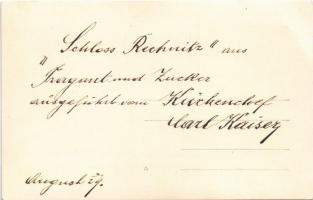 "Schloss Rechnitz" aus
Tragant und Zucker
ausgeführt vom Küchenchef
Carl Kaiser
August 29.